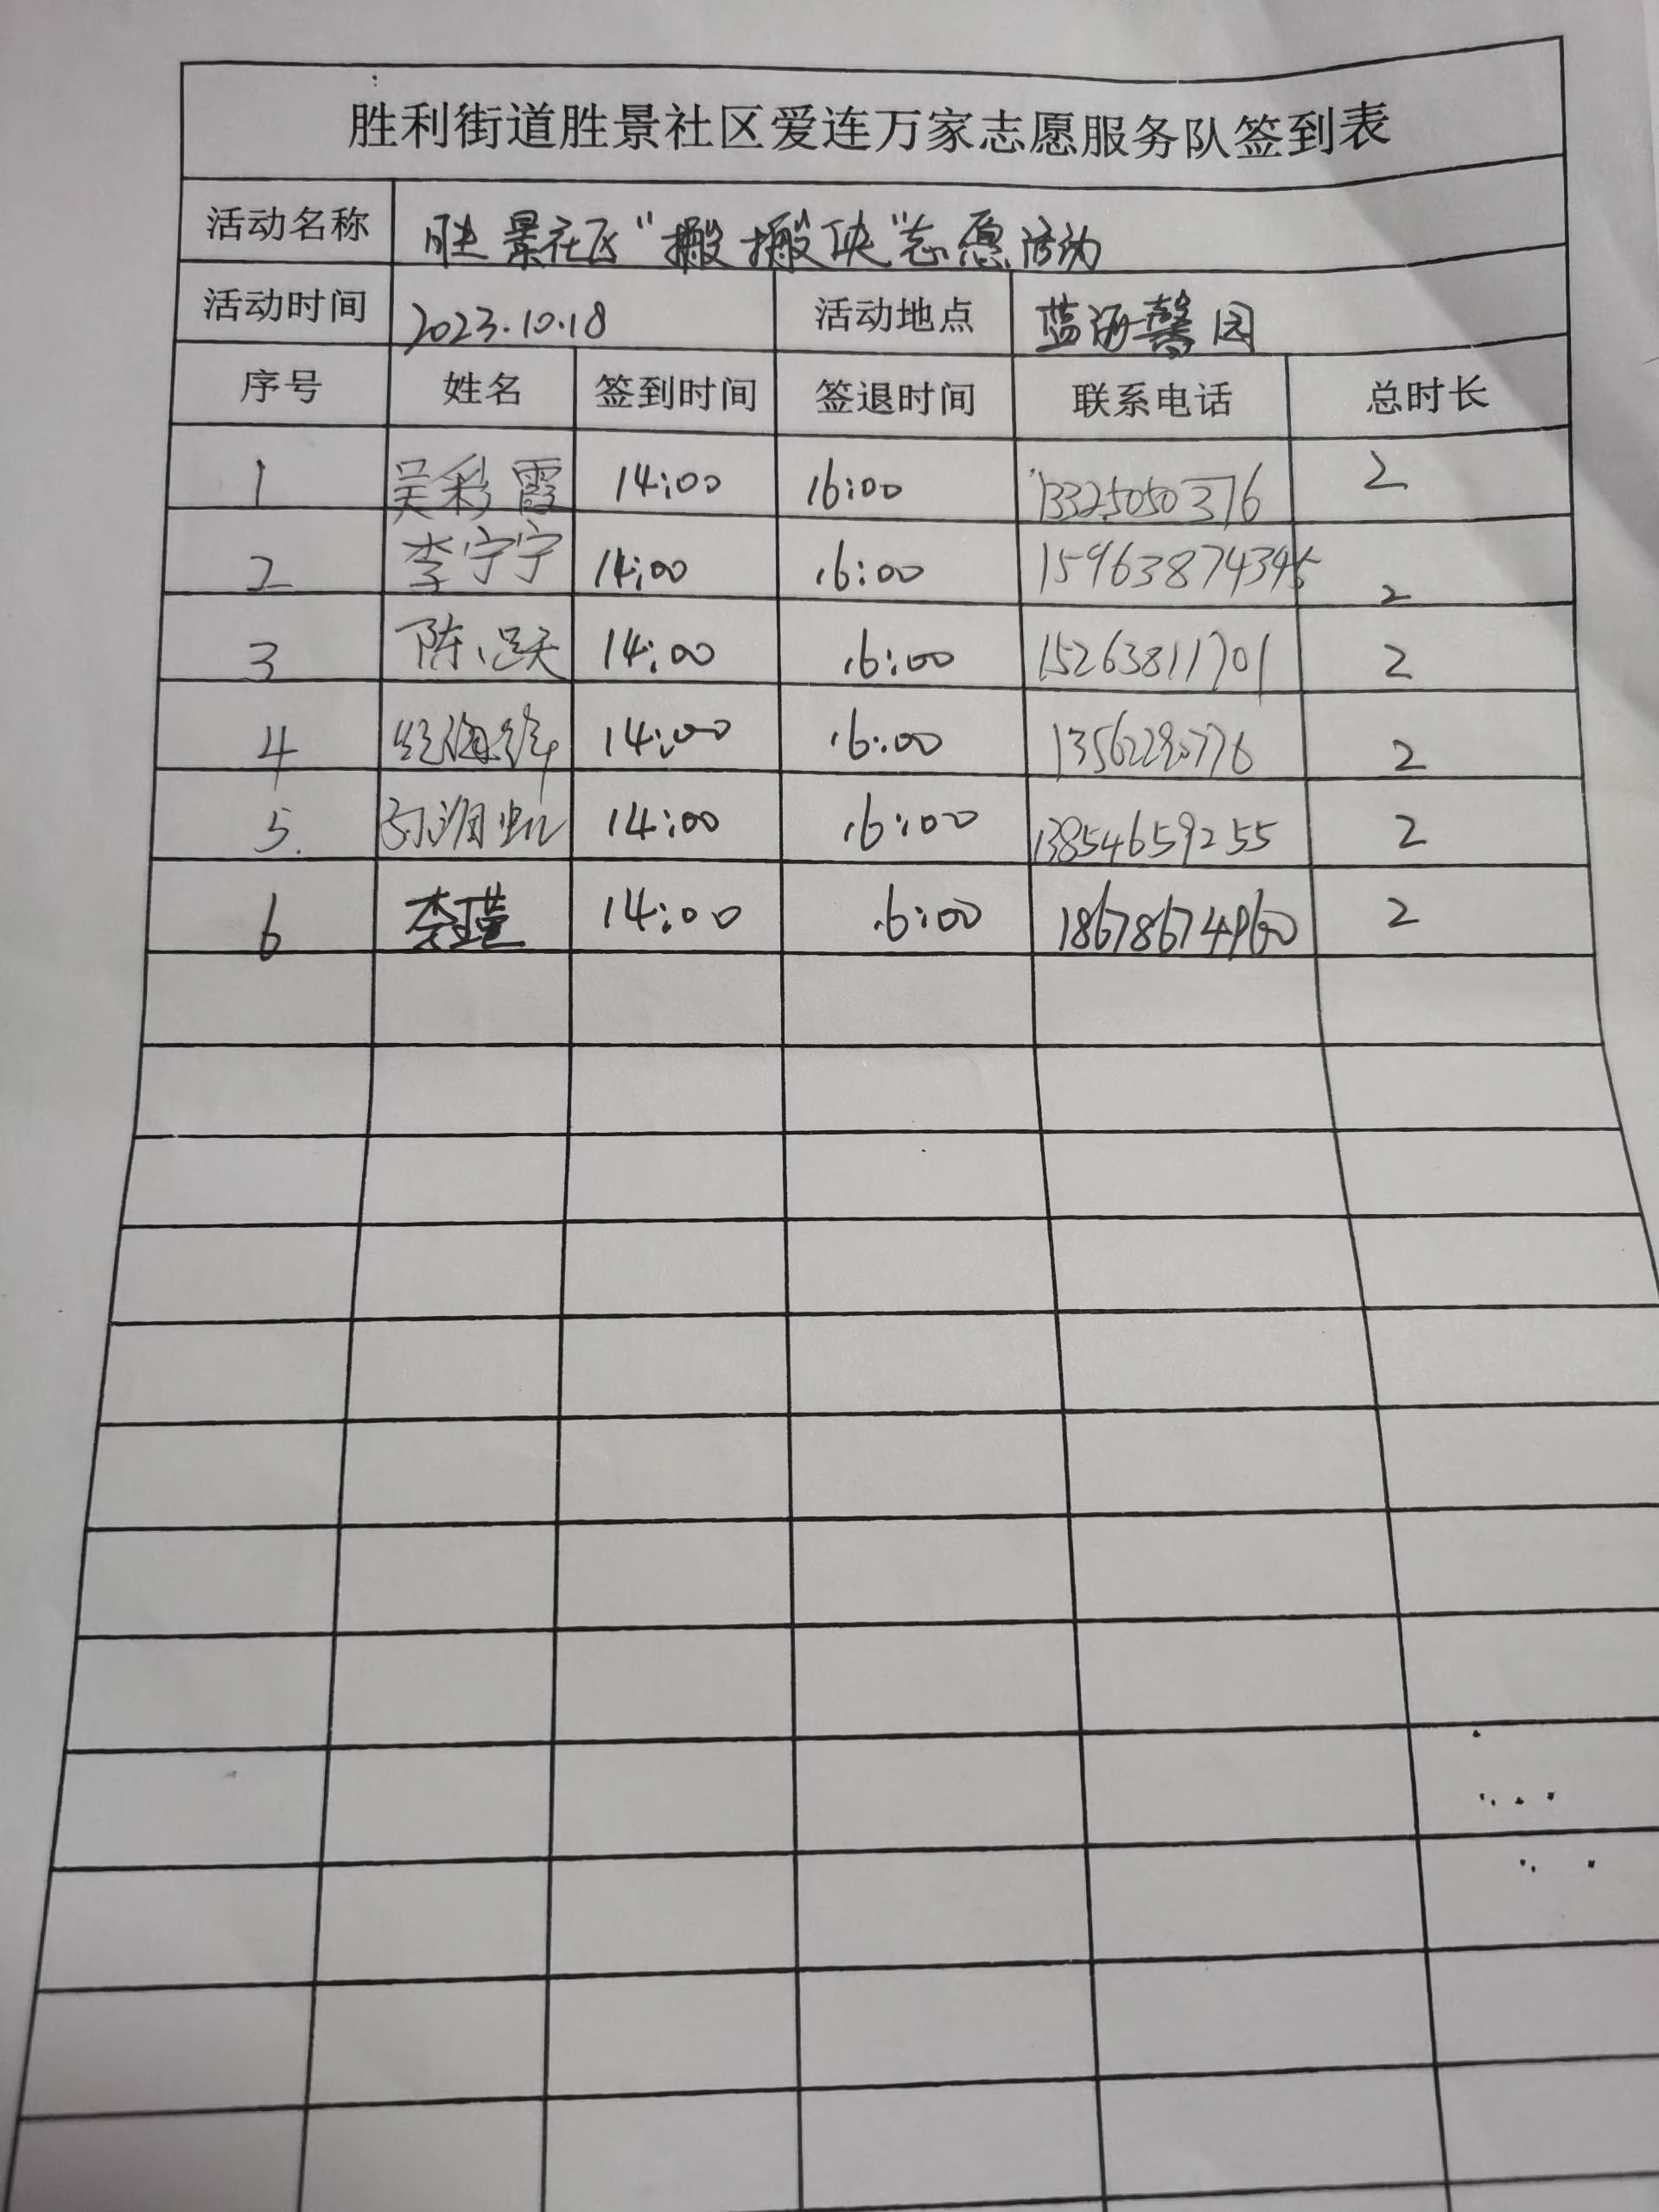 胜利街道胜景社区爱连万家志愿服务队签到表
活动名称 胜景社区“搬搬侠”志愿活动
活动时间 2023.10.18 活动地点 蓝海馨园
序号 姓名 签到时间 签退时间 联系电话 总时长
1 吴彩霞 14:00 16:00 13325050376 2
2 李宁宁 14:00 16:00 2
3 陈 14:00 16:00 15263811701 2
4 14:00 16:00 2
5. 14:00 16:00 13854659255 2
6 李瑾 14:00 16:00 18678674960 2